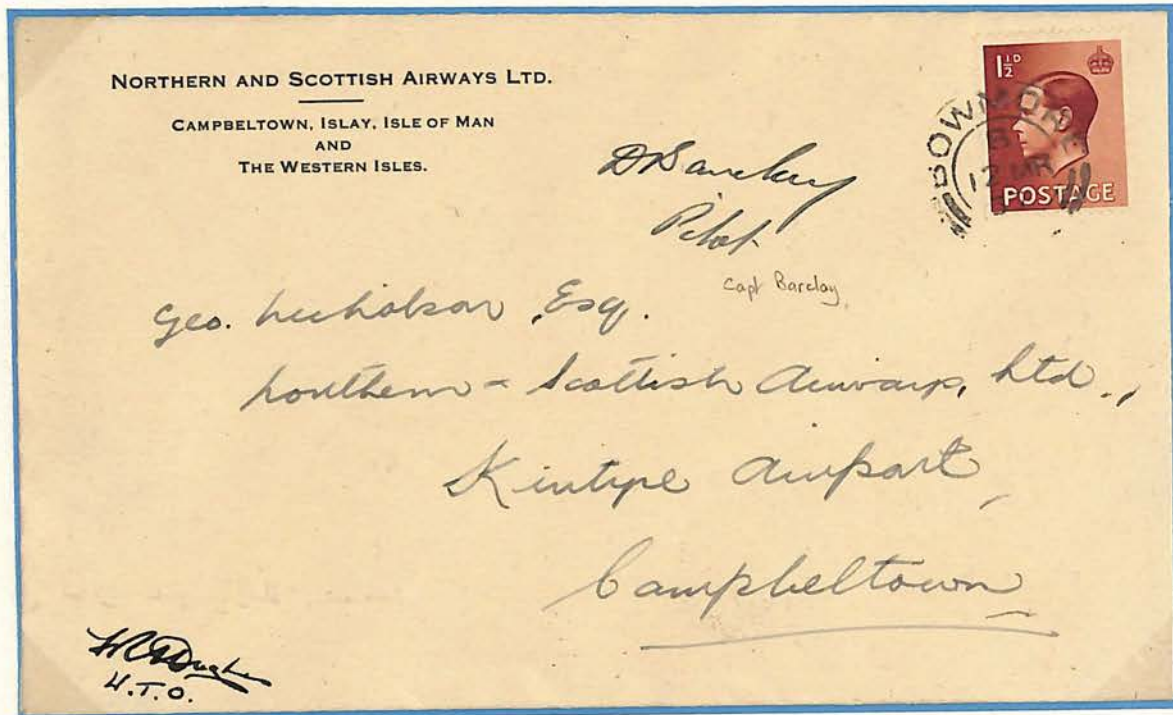 NORTHERN AND SCOTTISH AIRWAYS LTD.
CAMPBELTOWN, ISLAY, ISLE OF MAN
AND
THE WESTERN ISLES.
1½D
POSTAGE
BOWMORE
12 MR
D Barclay
Pilot
Capt Barclay
Geo. Nicholson, Esq.
Northern & Scottish Airways, Ltd.,
Kintyre Airport,
Campbeltown
W.T.O.